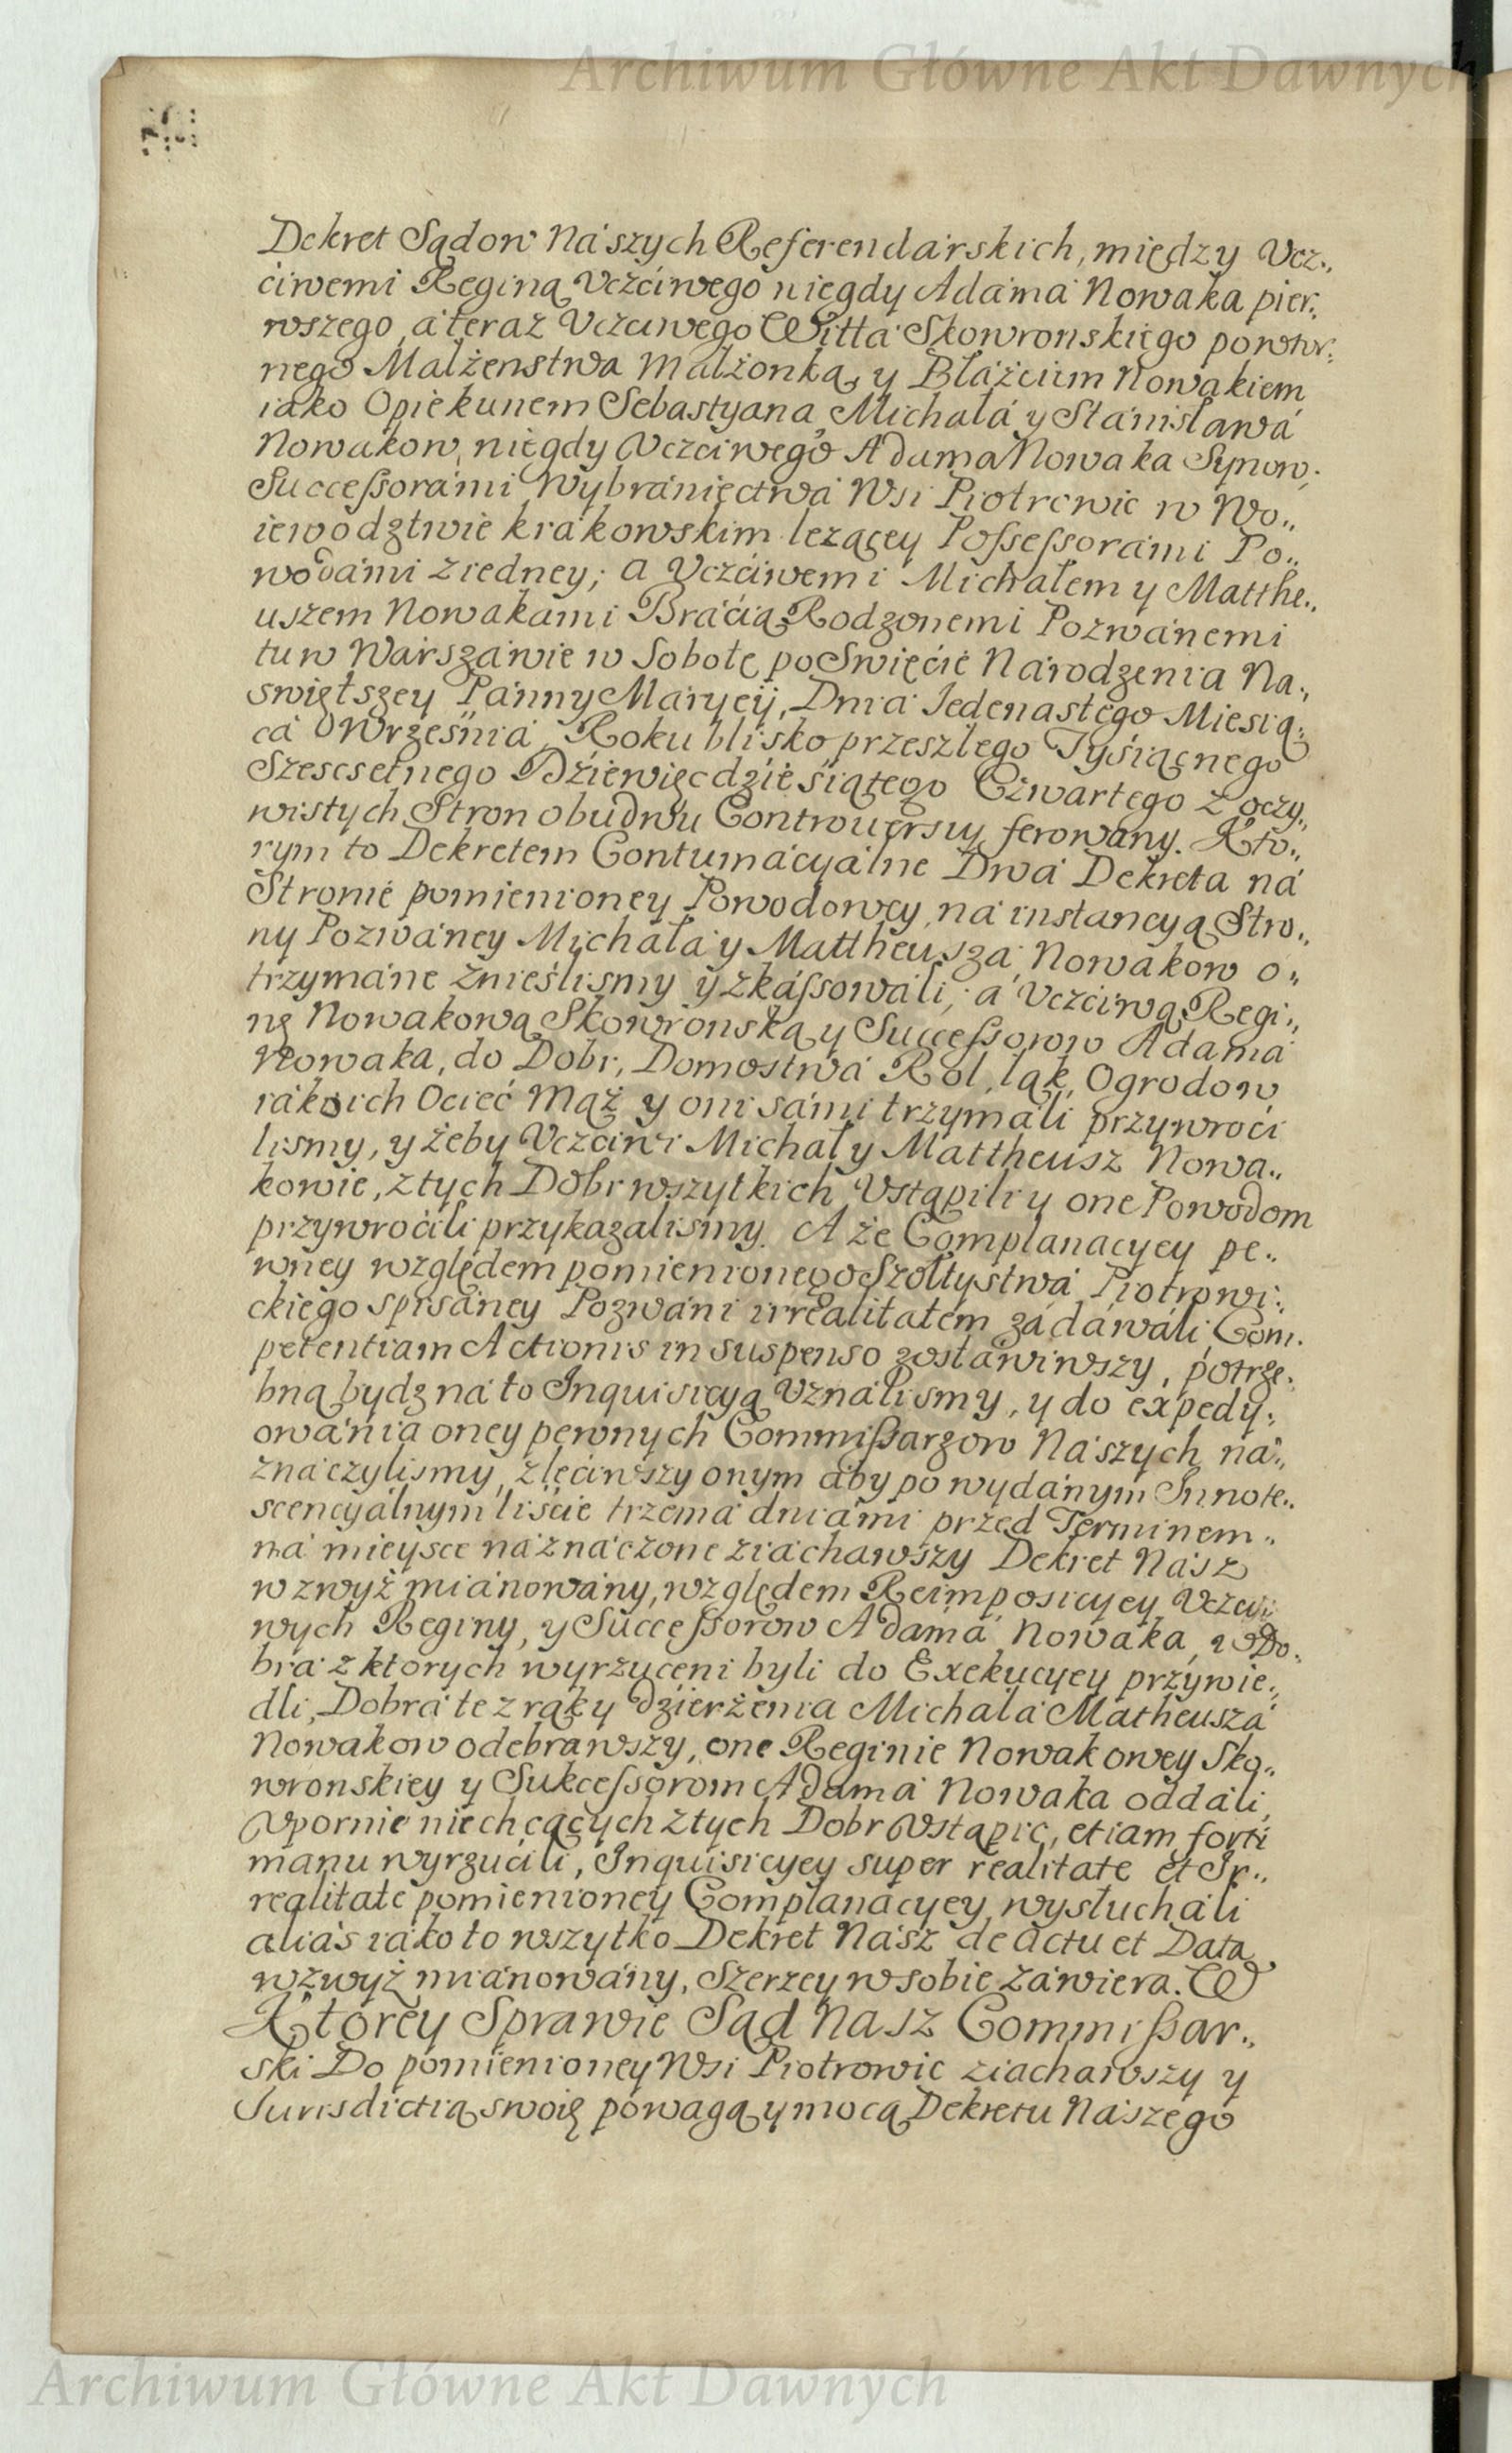 Archiwum Główne Akt Dawnych
Dekret Sądow Nászych Referendárskich, między Vcz„
ćiwemi Reginą Vczćiwego niegdy Adámá Nowáká pier„
wszego, á teraz Vczciwego Witta Skowronskiego powtor„
nego Malżenstwa Małżonką, y Błáżeiem Nowákiem
iako Opiekunem Sebastyana, Micháłá y Stánisławá
Nowákow, niegdy Vczciwego Adama Nowaka Synow,
Successorámi Wybránięctwá Wsi Piotrowic w Wo„
iewodztwie krákowskim lezącey Possessorámi Po„
wodámi z iedney; a Vczćiwemi Micháłem y Matthe„
uszem Nowakami Bráćią Rodzonemi Pozwánemi
tu w Wárszáwie w Sobotę po Swięćie Národzenia Na„
swiętszey Pánny Máryey, Dniá Jedenastego Miesią„
cá Wrześniá, Roku blisko przeszłego Tyśiącnego
Szescsetnego Dźiewięcdźieśiątego Czwartego z oczy„
wistych Stron obudwu Controuersuy ferowány. Kto„
rym to Dekretem Contumácyálne Dwá Dekretá ná
Stronie pomienioney Powodowey, ná instancyą Stro„
ny Pozwáney Micháłá y Mattheuszá Nowákow o„
trzymáne znieślismy y zkássowáli; á Vczćiwą Regi„
nę Nowakową Skowrońską y Successorow Adámá
Nowaka, do Dobr, Domostwá Rol, łąk, Ogrodow
iáko ich Ociéć Mąż y oni sámi trzymáli przywroći
lismy, y żeby Vczciwi Michał y Mattheusz Nowa„
kowie, z tych Dobr wszytkich Vstąpili y one Powodom
przywroćili przykazalismy. A że Complanacyey pe„
wney względem pomienionego Szołtystwá Piotrowi„
ckiego spisáney Pozwáni irrealitatem zádáwáli, Com„
petentiam Actionis in suspenso zostáwiwszy, potrze„
bną bydz ná to Inquisicyą Vználismy, y do expedy„
owánia oney pewnych Commissarzow Nászych ná„
znáczylismy, zlećiwszy onym áby po wydánym Innote„
scencyálnym liśćie trzemá dniámi przed Terminem
ná mieysce náznáczone ziachawszy Dekret Nász
wzwyż miánowány, względem Reimposicyey Vczći„
wych Reginy, y Successorow Adámá Nowáka, w Do„
brá z ktorych wyrzuceni byli do Exekucyey przywie„
dli, Dobrá te z rąk y dzierżenia Micháłá Matheuszá
Nowakow odebrawszy, one Reginie Nowakowey Sko„
wronskiey y Sukcessorom Adámá Nowaka oddáli,
Vpornie niechcących z tych Dobr Vstąpić, etiam forti
manu wyrzućili, Inquisicyey super realitate et Ir„
realitate pomienioney Complanácyey wysłucháli
aliás iáko to wszytko Dekret Nász de actu et Data
wzwyż miánowány, Szerzey w sobie záwiera. W
Ktorey Spráwie Sąd Nász Commissar„
ski Do pomienioney Wsi Piotrowic ziachawszy y
Jurisdictią swoię powagą y mocą Dekretu Nászego
Archiwum Główne Akt Dawnych